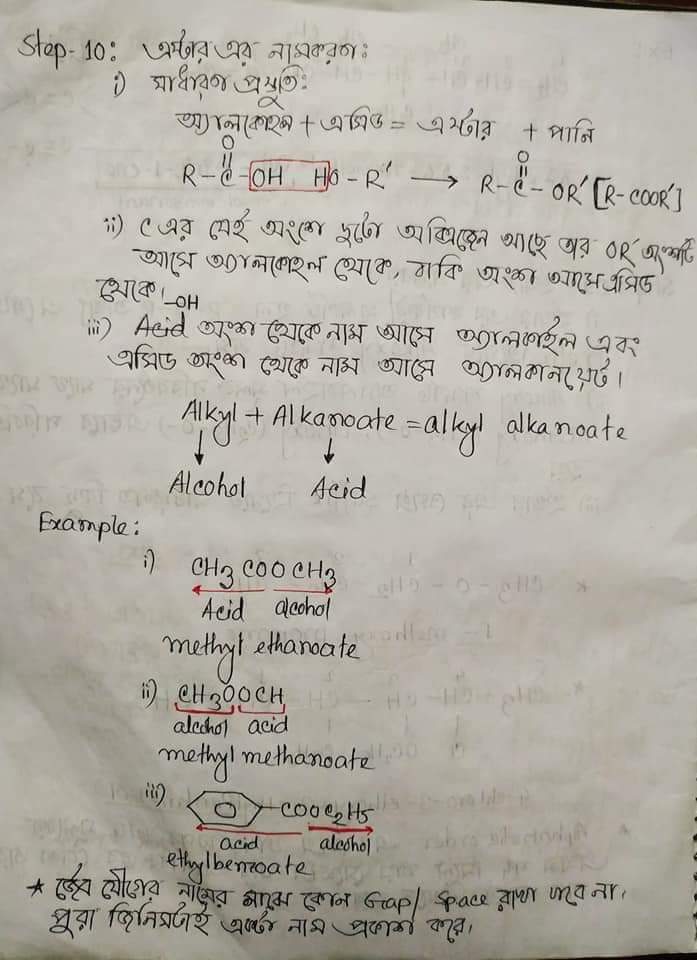 Step-10: এস্টার এর নামকরণঃ
i) সাধারণ প্রস্তুতিঃ
অ্যালকোহল + এসিড = এস্টার + পানি
O O
R-C-OH HO-R′ → R-C-OR′ [R-COOR′]
ii) C এর যেই অংশে দুটো অক্সিজেন আছে তার OR′ অংশটি
আসে অ্যালকোহল থেকে, বাকি অংশ আসে এসিড
থেকে।
-OH
iii) Acid অংশ থেকে নাম আসে অ্যালকাইল এবং
এসিড অংশ থেকে নাম আসে অ্যালকানয়েট।
Alkyl + Alkanoate = alkyl alkanoate
↓ ↓
Alcohol Acid
Example:
i) CH3 COO CH3
Acid alcohol
methyl ethanoate
ii) CH3OOCH
alcohol acid
methyl methanoate
iii) COOC2H5
acid alcohol
ethylbenzoate
* জৈব যৌগের নামের মাঝে কোন Gap/ Space রাখা যাবে না।
পুরা জিনিসটাই একটা নাম প্রকাশ করে।